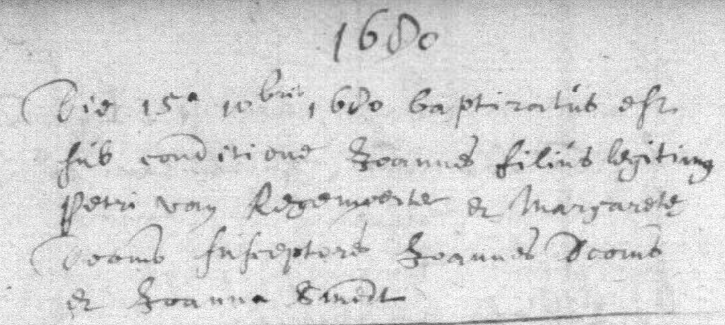 1680
Die 15a 10bris 1680 baptizatus est
sub conditione Joannes filius legitimus
Petri van Regemoerter et Margarete
Scoms susceptores Joannes Scoms
et Joanna